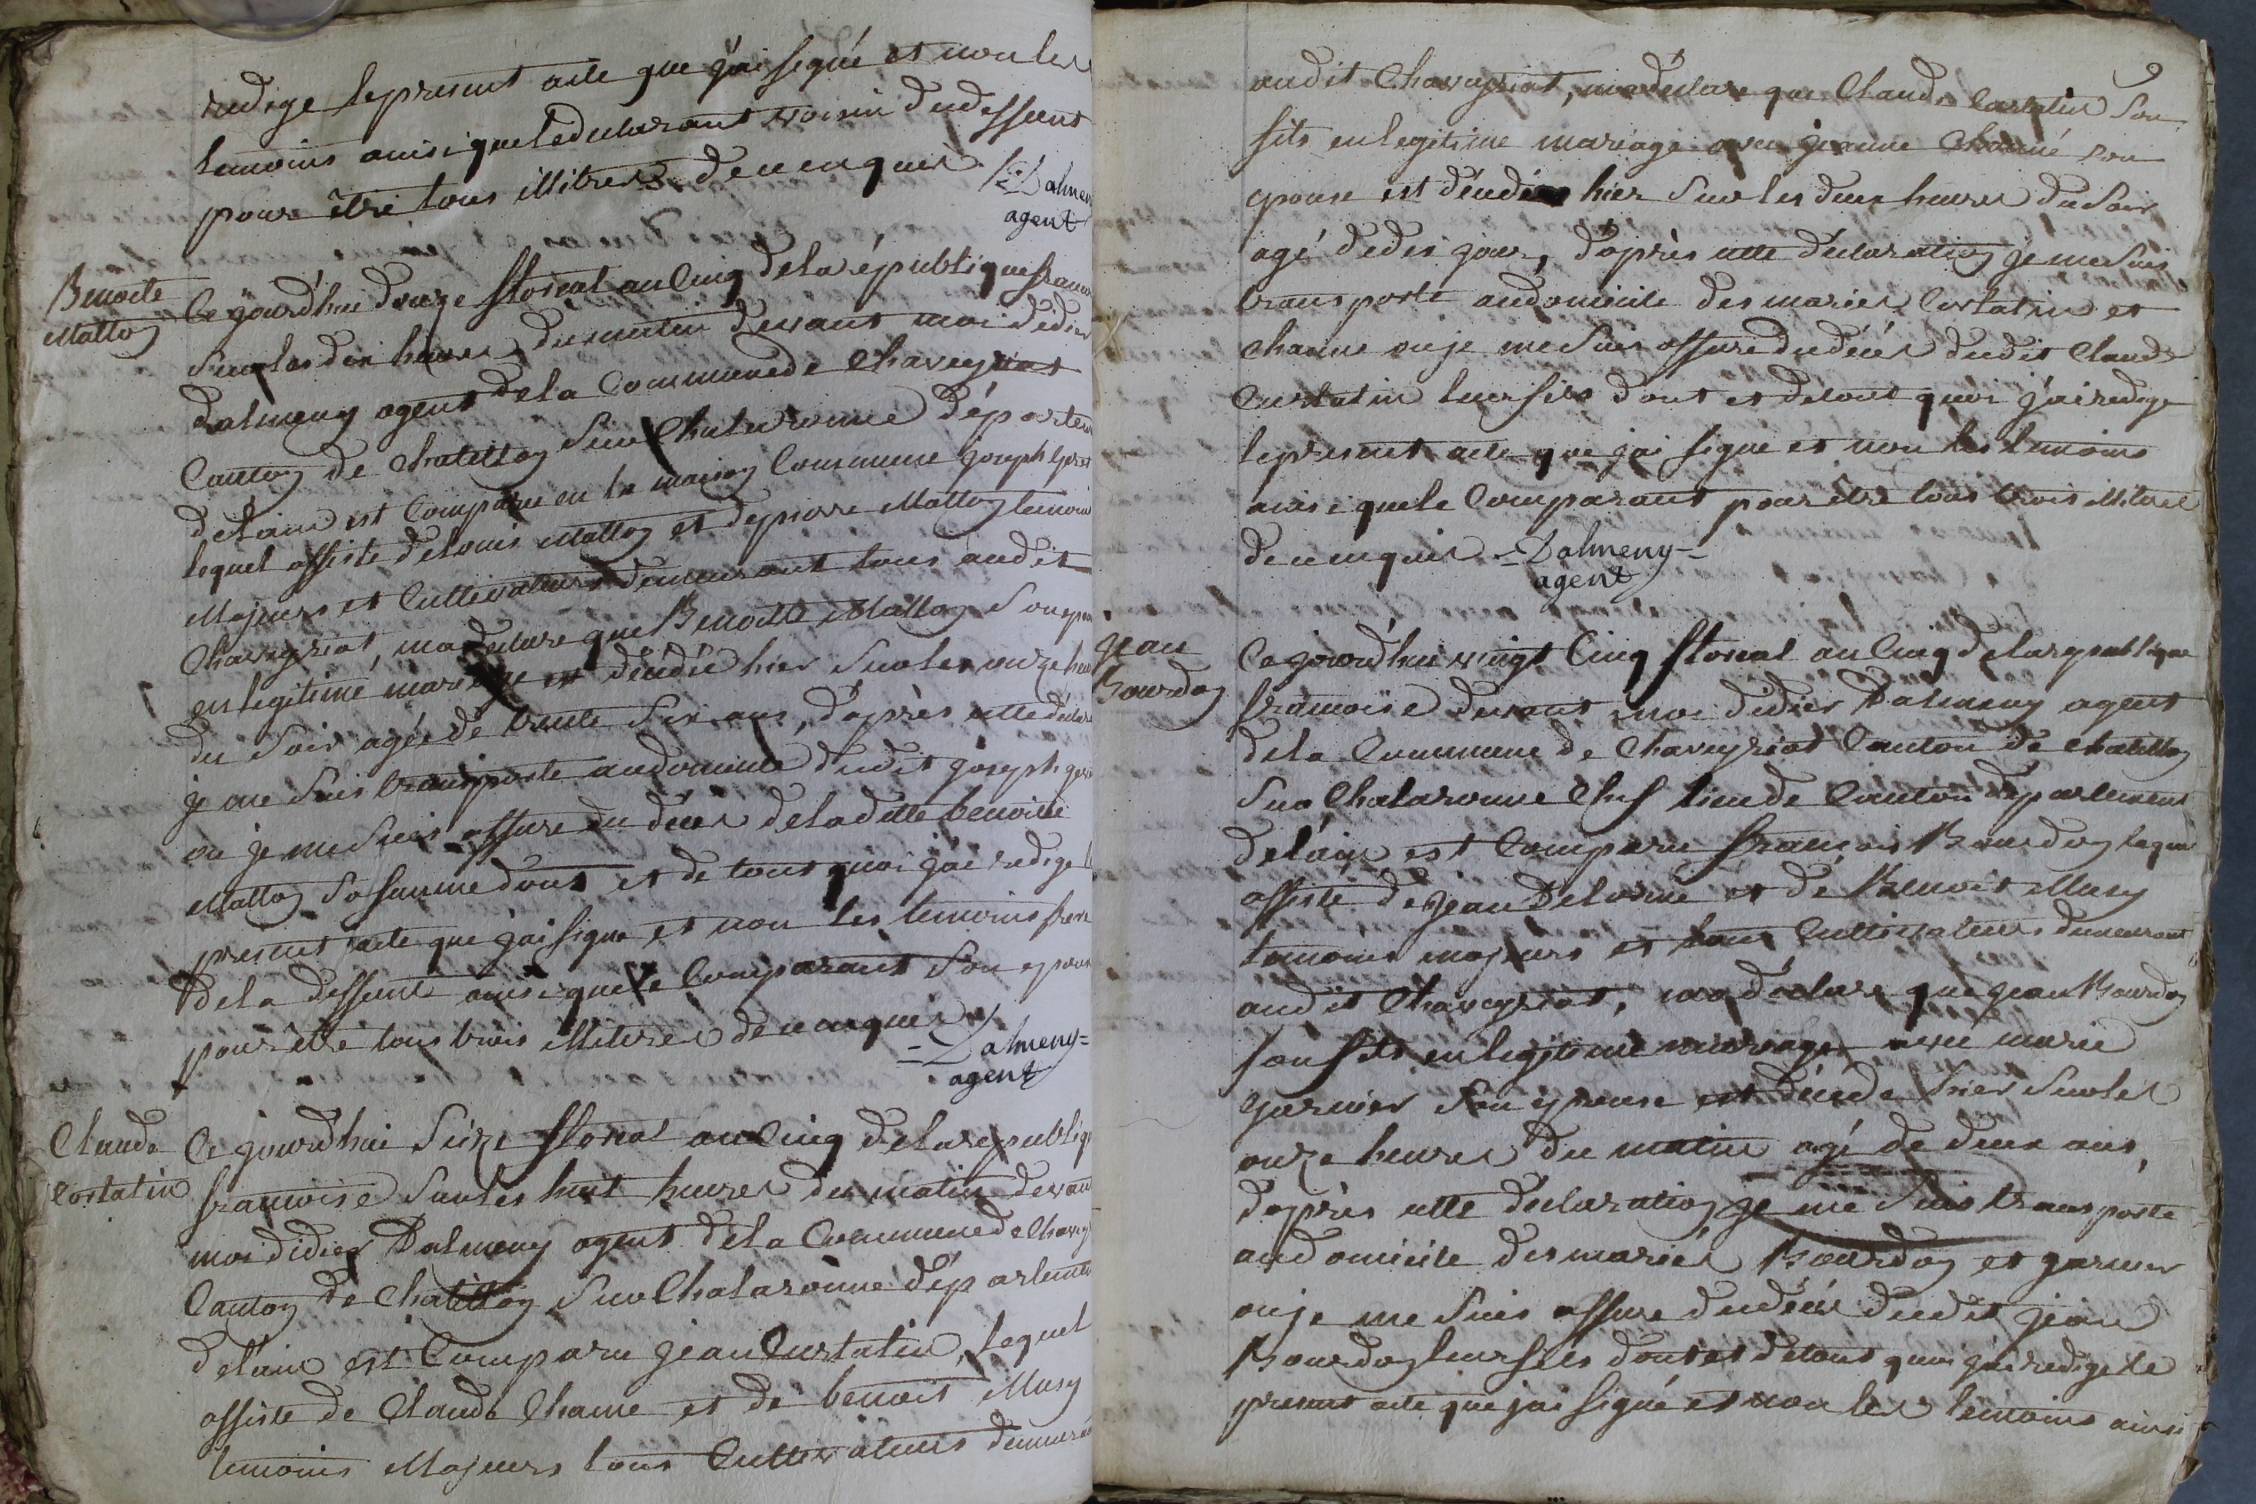 redige le present acte que j'ai signé et non les
temoins ainsi que le declarant voisin du deffunt
pour être tous illitérés de ce enquis
=Dalmeny
agent
Benoite
Matton
Ce jourd'hui douze floreal an cinq de la république franc
sur les dix heures du matin devant moi didier
dalmeny agent de la Commune de Chaveyriat
Canton de Chatillon sur Chalaronne départem
de l'ain est Comparu en la maison Commune joseph
lequel assiste de louis Matton et de pierre Matton temoins
Majeurs et Cultivateurs demeurant tous audit
Chaveyriat, m'a declare que Benoitte Matton son epou
en legitime mariage est décédée hier sur les onze heu
du soir agée de trente six ans, d'après cette déclara
je me suis transporte au domicile dudit joseph
ou je me suis assure du décès de la dette benoitte
Matton sa famme dont et de tout quoi j'ai redige l
present acte que j'ai signe et non les temoins frere
de la deffunte ainsi que le Comparant son epoux
pour être tous trois illitéres de ce enquis
=Dalmeny=
agent
Claude
Cortatin
Ce jourd'hui seize floreal an Cinq de la republiq
francoise sur les huit heures du matin devan
moi didier Dalmeny agent de la Commune de Chavey
Canton de Chatillon sur Chalaronne départemen
de l'ain est Comparu jean Curtatin, lequel
assiste de Claude Channe et de benoit Musy
temoins Majeurs tous Cultivateurs demeura
9
audit Chaveyriat, m'a declare que Claude Cortatin son
fils en legitime mariage avec jeanne Channe son
epouse est décédé hier sur les deux heures du soir
agé de dix jour, d'après cette déclaration je me suis
transporte au domicile des mariés Cortatin et
channe ou je me suis assure du décès dudit Claude
Curtatin leur fils dont et de tout quoi j'ai redige
le present acte que j'ai signe et non les temoins
ainsi que le Comparant pour être tous trois illiteres
de ce enquis =Dalmeny=
agent
jean
Bourdon
Ce jourd'hui vingt Cinq floreal an Cinq de la republique
francoise devant moi didier Dalmeny agent
de la Commune de Chaveyriat Canton de Chatillon
sur Chalaronne Chef lieu de Canton département
de l'ain est Comparu francois Bourdon lequel
assisté de jean Delorme et de Benoit Musy
temoins majeurs et tous Cultivateurs demeurant
audit Chaveyriat, m'a déclare que jean Bourdon
son fils en legitime mariage avec marie
garnier son epouse est décéde hier sur les
onze heures du matin agé de deux ans,
d'après cette declaration je me suis transporte
au domicile des mariés Bourdon et garnier
ou je me suis assure du décès dudit jean
Bourdon leur fils dont et de tout quoi j'ai redige le
present acte que j'ai signé et non les temoins ainsi